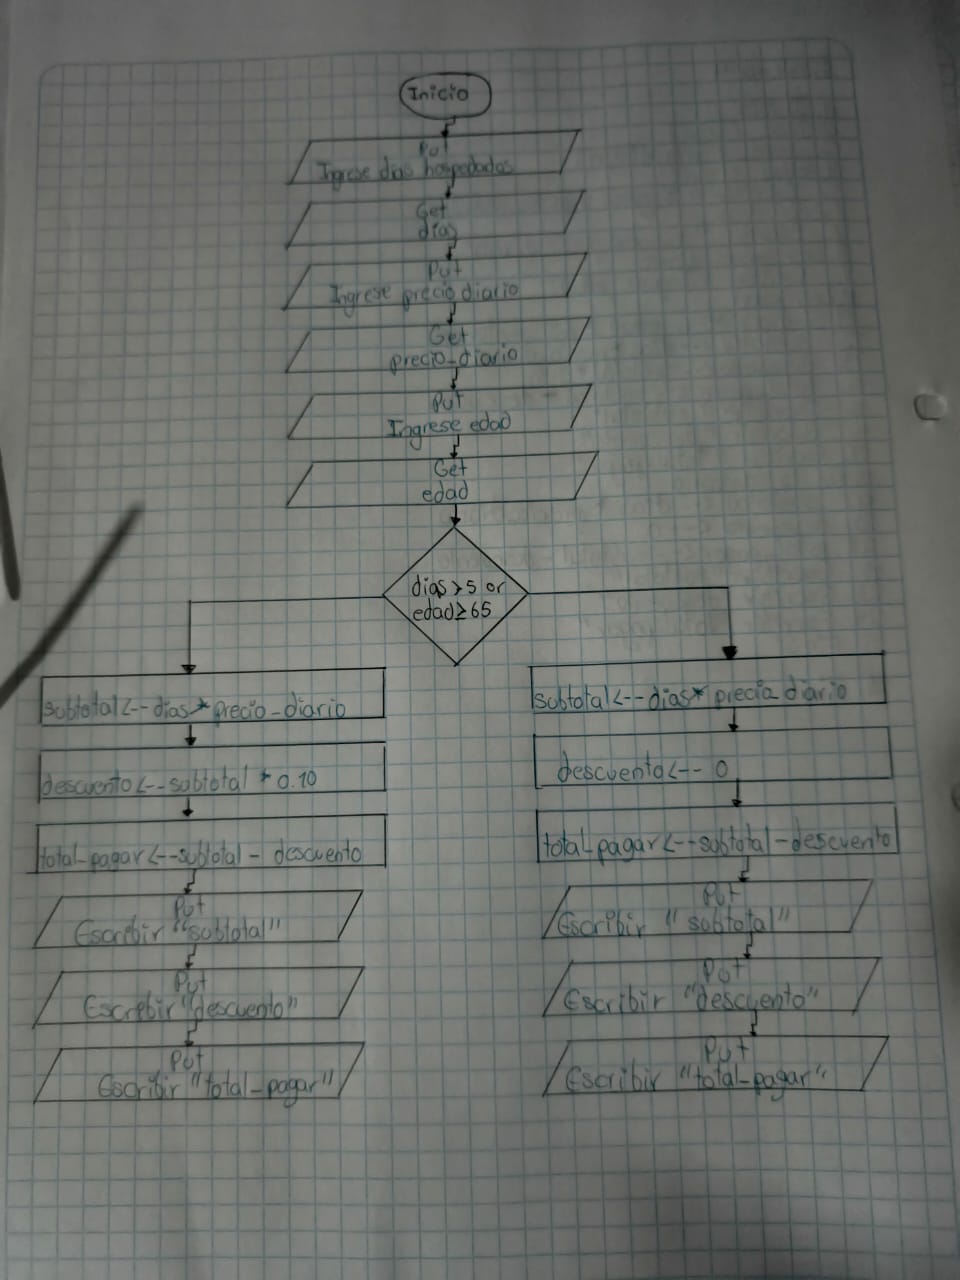 Inicio
Put
Ingrese dias hospedados
Get
dias
Put
Ingrese precio diario
Get
precio_diario
Put
Ingrese edad
Get
edad
dias > 5 or
edad ≥ 65
subtotal <-- dias * precio_diario
descuento <-- subtotal * 0.10
total_pagar <-- subtotal - descuento
Put
Escribir "subtotal"
Put
Escrebir "descuento"
Put
Escribir "total_pagar"
subtotal <-- dias * precia diario
descuento <-- 0
total_pagar <-- subtotal - descuento
Put
Escribir "subtotal"
Put
Escribir "descuento"
Put
Escribir "total_pagar"